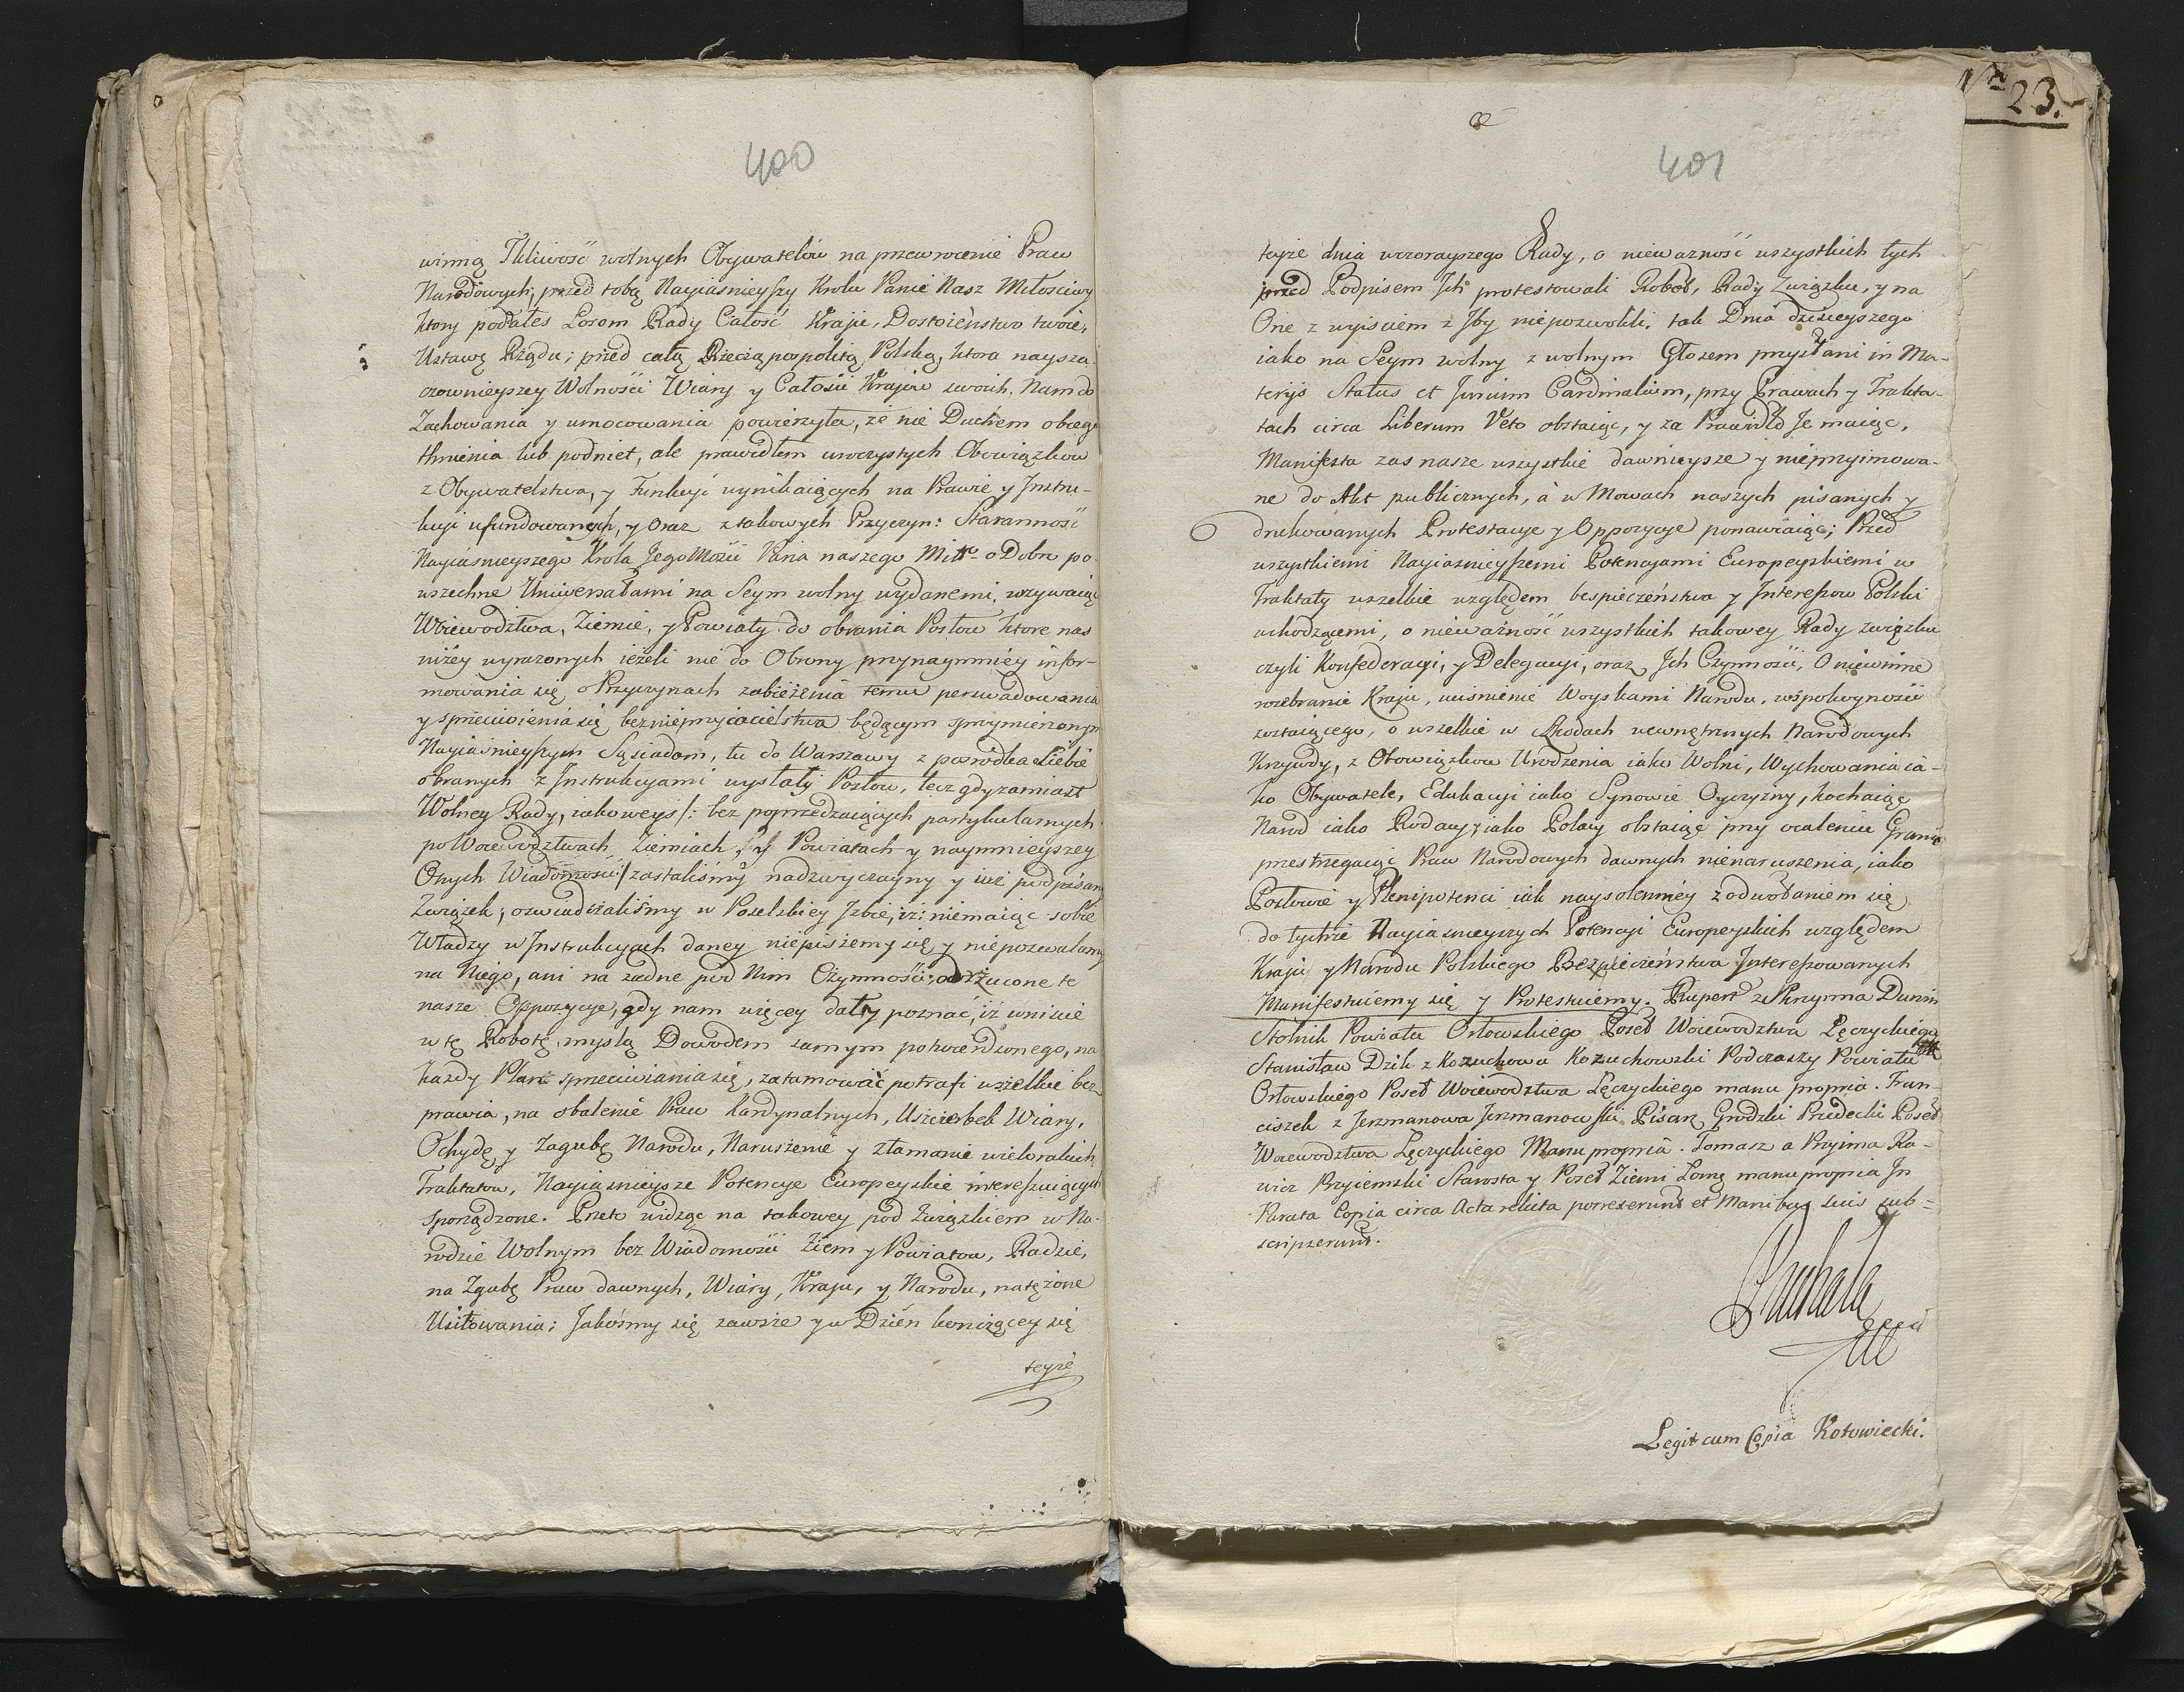 400
winną Tkliwość wolnych Obywatelów na przewrocenie Praw
Narodowych; przed tobą Nayiaśnieyszy Krolu Panie Nasz Miłościwy
ktory podałes Losom Rady Całość Kraju, Dostoieństwo twoie,
Ustawę Rządu; przed całą Rzecząpospolitą Polską, ktora naysza-
cownieyszey Wolności Wiary y Całości Kraiow swoich, Nam do
Zachowania y umocowania powierzyła, że nie Duchem obcego
tchnienia lub podniet, ale prawidłem uroczystych Obowiązkow
z Obywatelstwa, y Funkcyi wynikaiących na Prawie y Instru-
kcyi ufundowanych, y oraz z takowych Przyczyn: Staranność
Nayiaśnieyszego Króla Jego Mości Pana naszego Miłłgo o Dobro po-
wszechne Uniwersałami na Seym wolny wydanemi, wzywaiąc
Woiewodztwa, Ziemie, y Powiaty do obrania Posłow ktore nas
niżey wyrazonych ieżeli nie do Obrony przynaymniéy infor-
mowania się o Przyczynach zabieżenia temu perswadowania
y sprzeciwienia się bez nieprzyiacielstwa będącym sprzymierzonym
Nayiaśnieyszym Sąsiadom, tu do Warszawy z pośrodka Siebie
obranych z Instrukcyami wysłały Posłow, lecz gdy zamiast
Wolney Rady, iakoweyś /: bez poprzedzaiących partykularnych
po Woiewodztwach Ziemiach, y Powiatach y naymnieyszey
Onych Wiadomości :/ zastaliśmy nadzwyczayny y iuż podpisany
Związek; oswiadczaliśmy w Poselskiey Izbie, iż: niemaiąc sobie
Władzy w Instrukcyach daney niepiszemy się, y niepozwalamy
na Niego, ani na żadne pod Nim Czynności; odrzucone te
nasze Oppozycye, gdy nam więcey dały poznać, iż wniscie
w tę Robotę, myslą Dowodem samym potwierdzonego, na
każdy Plan sprzeciwiania się, zatamować potrafi wszelkie bez-
prawia, na obalenie Praw kardynalnych, Uszczerbek Wiary,
Ochydę y Zagubę Narodu, Naruszenie y złamanie wielorakich
Traktatow, Nayiaśnieysze Potencye Europeyskie interessuiących
sporządzone. Przeto widząc na takowey pod Związkiem w Na-
rodzie Wolnym bez Wiadomości Ziem y Powiatow, Radzie,
na Zgubę Praw dawnych, Wiary, Kraju, y Narodu, natężone
Usiłowania; Jakośmy się zawsze y w Dzień kończącey się
teyże
No 23.
401
teyże dnia wczorayszego Rady, o nieważność wszystkich tych
przed Podpisem Ich protestowali Robot, Rady Związku, y na
One z wyiściem z Izby niepozwolili, tak Dnia dzisieyszego
iako na Seym wolny z wolnym Głosem przysłani in Ma-
teriis Status et Jurium Cardinalium, przy Prawach y Trakta-
tach circa Liberum Veto obstaiąc, y za Prawidło Je maiąc,
Manifesta zas nasze wszystkie dawnieysze y nieprzyimowa-
ne do Akt publicznych, à w Mowach naszych pisanych y
drukowanych Protestacye y Oppozycye ponawiaiąc; Przed
wszystkiemi Nayiaśnieyszemi Potencyami Europeyskiemi w
Traktaty wszelkie względem bespieczeństwa y Interessow Polski
wchodzącemi, o nieważność wszystkich takowey Rady związku
czyli Konfederacyi, y Delegacyi, oraz Ich Czynności, O niewinne
rozebranie Kraju, uciśnienie Woyskami Narodu, w spokoyności
zostaiącego, o wszelkie w Szkodach wewnętrznych Narodowych
Krzywdy, z Obowiązkow Urodzenia iako Wolni, Wychowania ia-
ko Obywatele, Edukacyi iako Synowie Oyczyzny, kochaiąc
Narod iako Rodacy, iako Polacy obstaiąc przy ocaleniu Granic
przestrzegaiąc Praw Narodowych dawnych nienaruszenia, iako
Posłowie y Plenipotenci iak naysolenniéy z odwołaniem się
do tychże Nayiaśnieyszych Potencyi Europeyskich względem
Kraju y Narodu Polskiego Bezpieczeństwa Interessowanych
Manifestuiemy się y Protestuiemy. Rupert z Skrzynna Dunin
Stolnik Powiatu Orłowskiego Poseł Woiewodztwa Łęczyckiego
Stanisław Dzik z Kozuchowa Kozuchowski Podczaszy Powiatu
Orłowskiego Poseł Woiewodztwa Łęczyckiego manu propria. Fran-
ciszek z Jerzmanowa Jerzmanowski Pisarz Grodzki Przedecki Poseł
Woiewodztwa Łęczyckiego Manu propria. Tomasz a Pryima Ra-
wicz Pryiemski Starosta y Poseł Ziemi Łomż manu propria In
Parata Copia circa Acta relicta porrexerunt et Manibus suis sub-
scripserunt.
Legit cum Copia Kotowiecki.